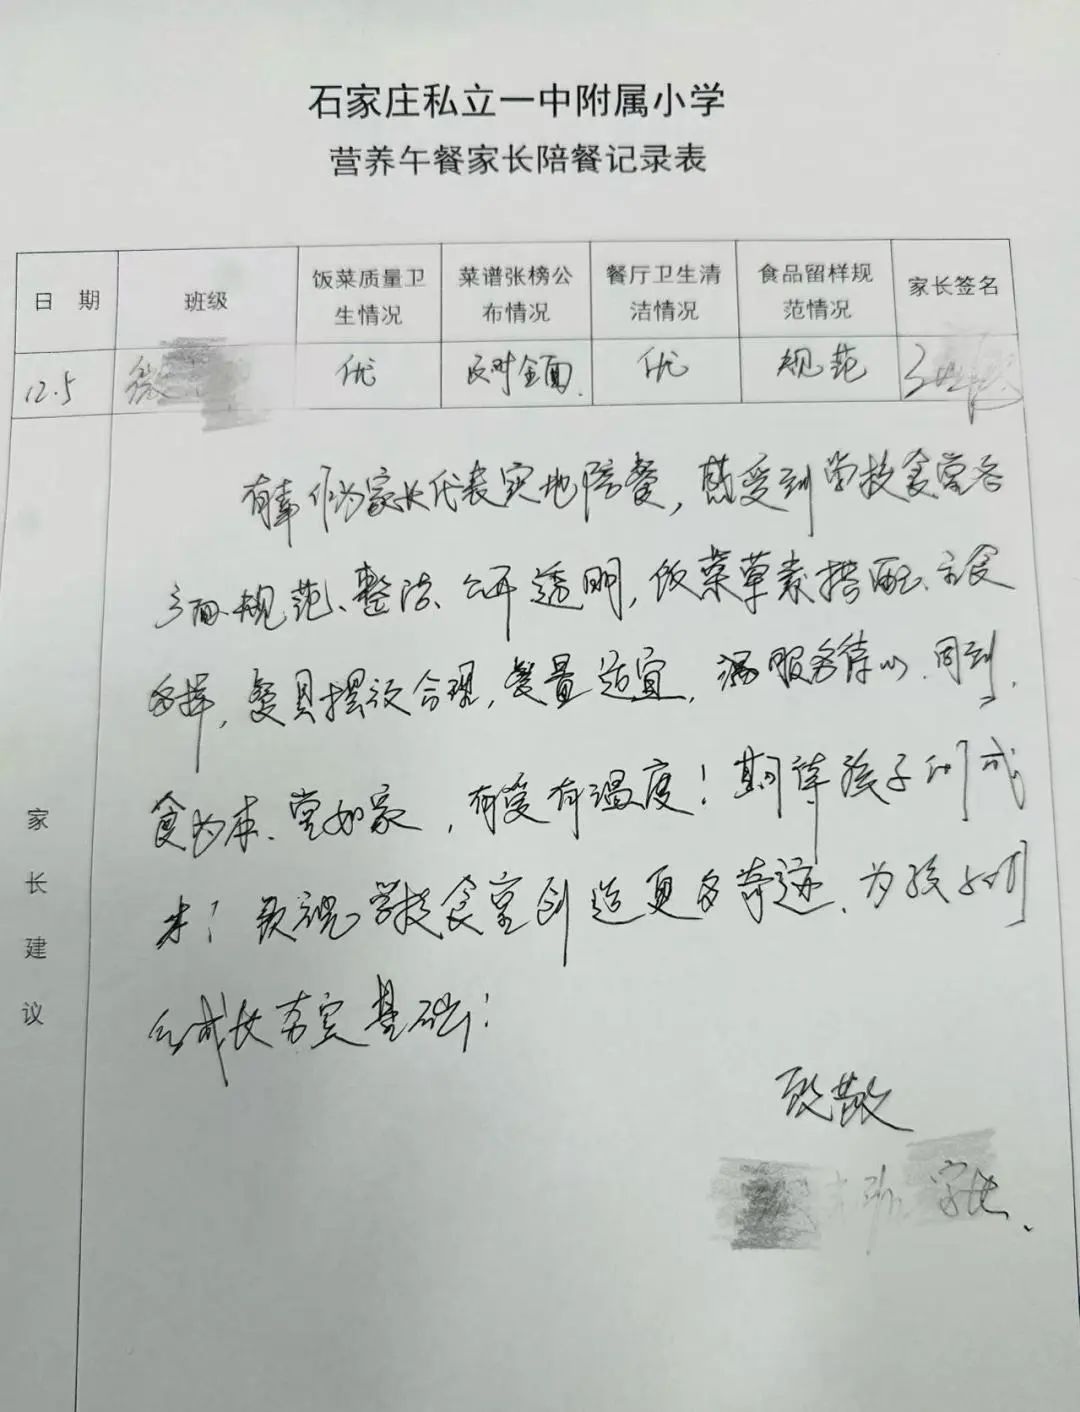 石家庄私立一中附属小学
营养午餐家长陪餐记录表
日 期 班级 饭菜质量卫生情况 菜谱张榜公布情况 餐厅卫生清洁情况 食品留样规范情况 家长签名
12.5 优 及时全面. 优 规范
家长建议
有幸作为家长代表实地陪餐,感受到学校食堂各
方面规范、整洁、公开透明,饭菜荤素搭配、主食
多样,餐具摆设合理,餐量适宜,服务周到.
食为本、堂如家,有爱有温度!期待孩子们成
才!祝愿学校食堂创造更多奇迹、为孩子们
的成长夯实基础!
致敬
家长.